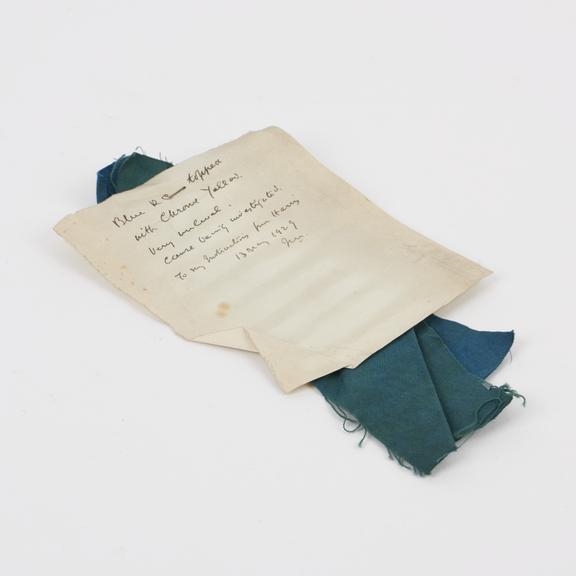 Blue R topped
with Chrome Yellow.
Very uneven.
Cause being investigated.
To my instructions from Harris
13 May 1929